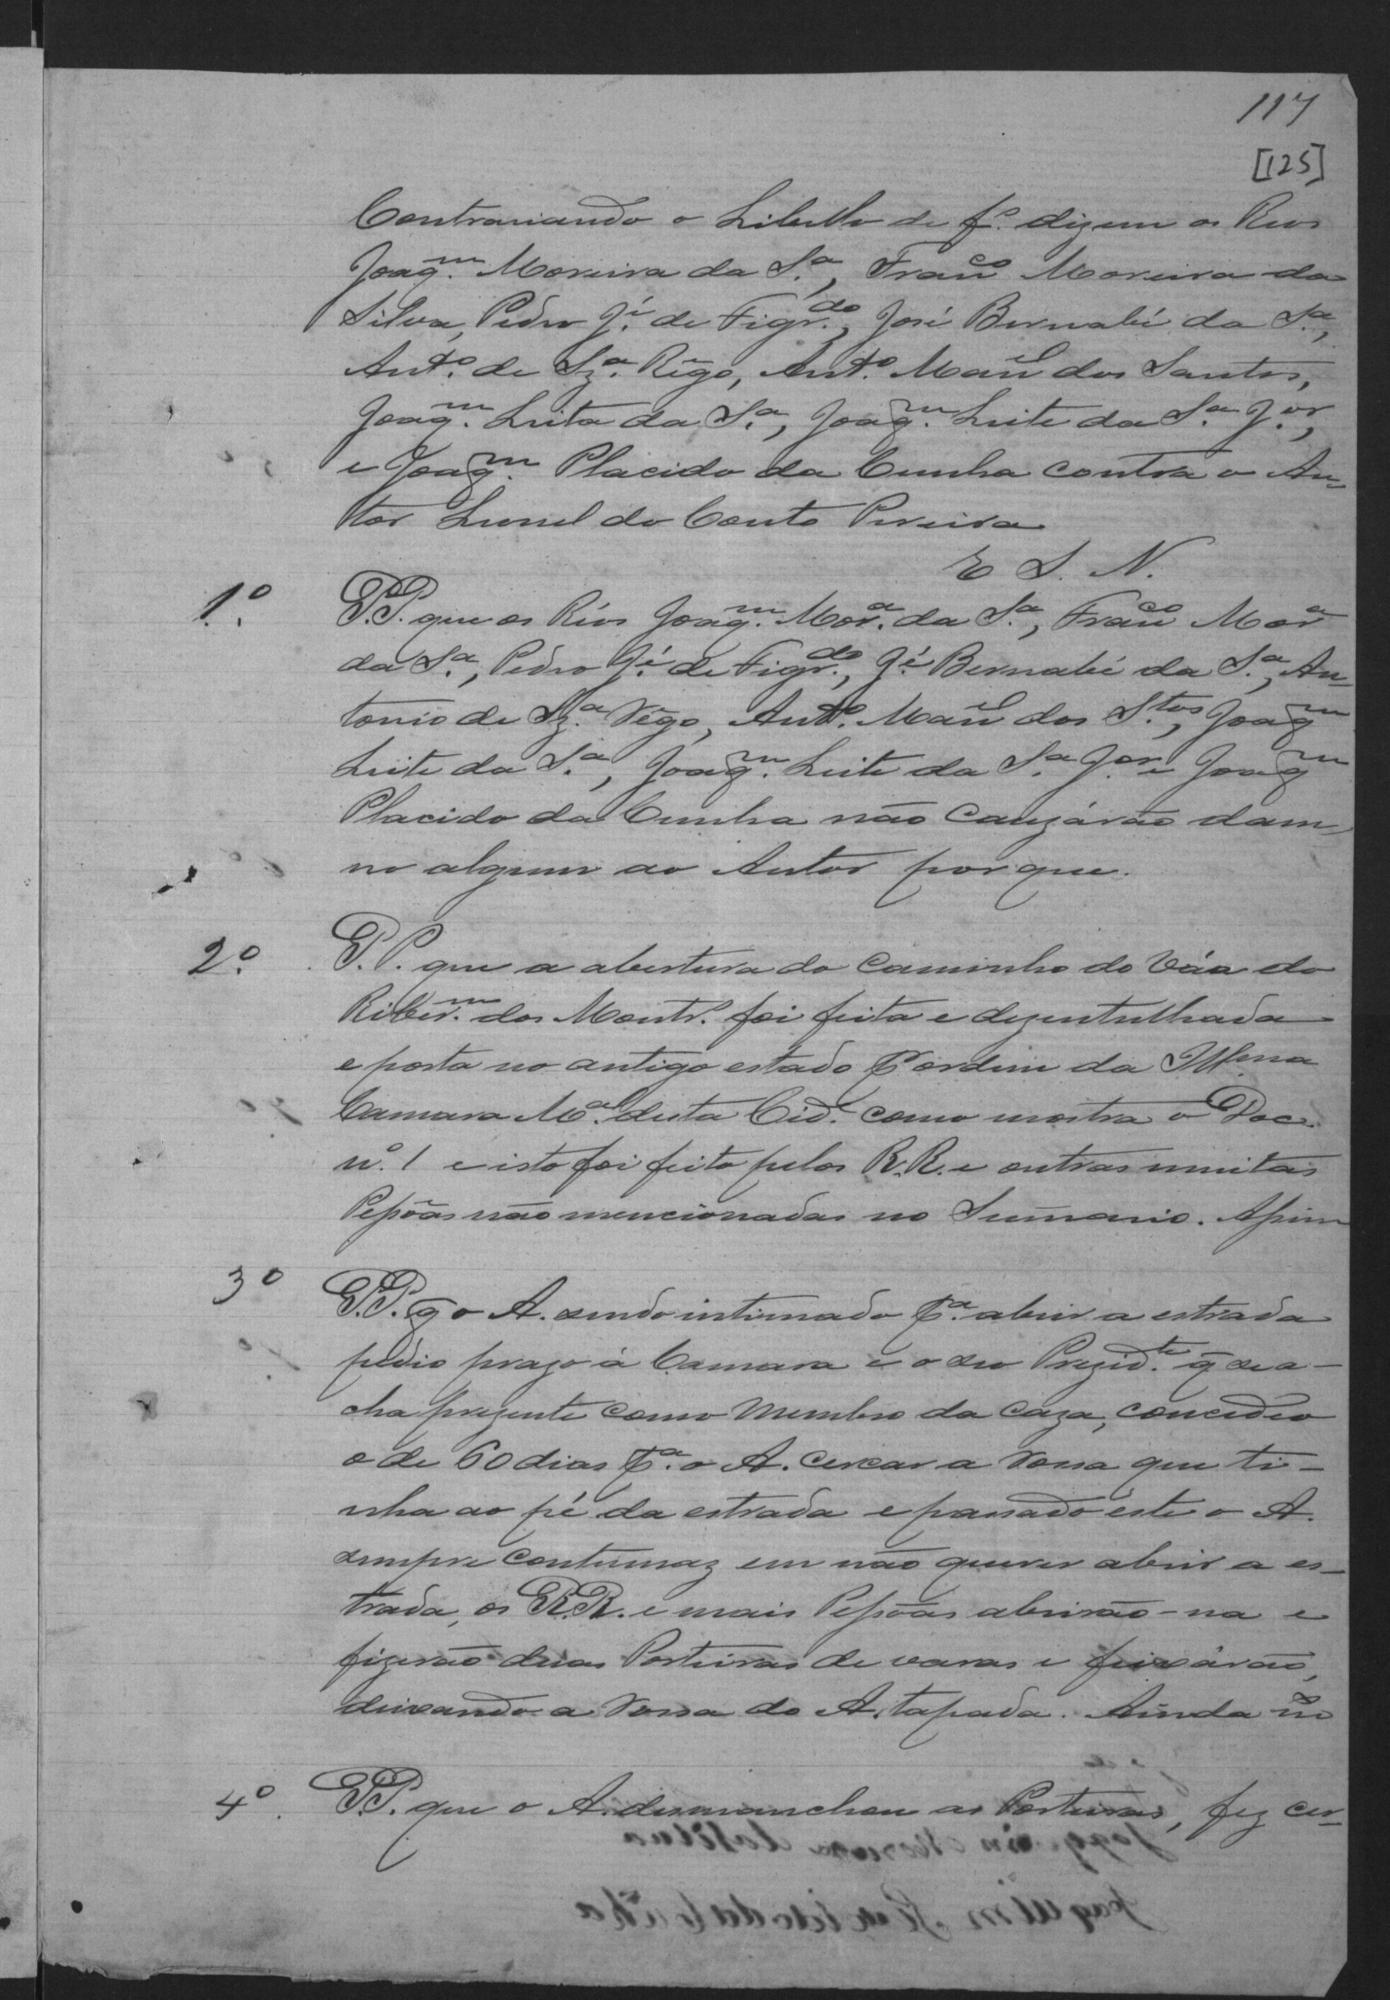 117
[125]
Contrariando o Libello de f.º dizem os Reos
Joaq.m Moreira da S.a, Fran.co Moreira da
Silva, Pedro J.é de Figr.do, José Bernabé da S.a,
Ant.º de Sz.a Rêgo, Ant.º Man.el dos Santos,
Joaq.m Leite da S.a, Joaq.m Leite da S.a J.or,
e Joaq.m Placido da Cunha contra o Au-
tor Leonel do Couto Pereira
E S. N.
1.º P.P. que os Réos Joaq.m Mor.a da S.a, Fran.co Mor.a
da S.a, Pedro J.é de Figr.do, J.é Bernabé da S.a, An-
tonio de Sz.a Rêgo, Ant.º Man.el dos S.tos, Joaq.m
Leite da S.a, Joaq.m Leite da S.a J.or e Joaq.m
Placido da Cunha não cauzárão dam-
no algum ao Autor por que.
2.º P.P. que a abertura do caminho do Váa do
Ribir.m dos Montr.º foi feita e dezentulhada
e posta no antigo estado p.r ordem da Ill.ma
Camara M.al desta Cid.e como mostra o Doc.
n.º 1 e isto foi feito pelos R.R. e outras muitas
Pessôas não mencionadas no Sumario. Assim
3º P.P. q̃ o A. sendo intimado p.a abrir a estrada
pedio prazo á Camara e o seo Prezid.te q̃ se a-
cha prezente como Membro da Caza, concedeo
o de 60 dias p.a o A. cercar a rossa que ti-
nha ao pé da estrada e passado éste o A.
sempre contumaz em não querer abrir a es-
trada, os R.R. e mais Pessôas abrirão-na e
fizerão duas Porteiras de varas e feixárão,
deixando a rossa do A. tapada. Ainda m
4º. P.P. que o A. desmanchou as Porteiras, fez cer-